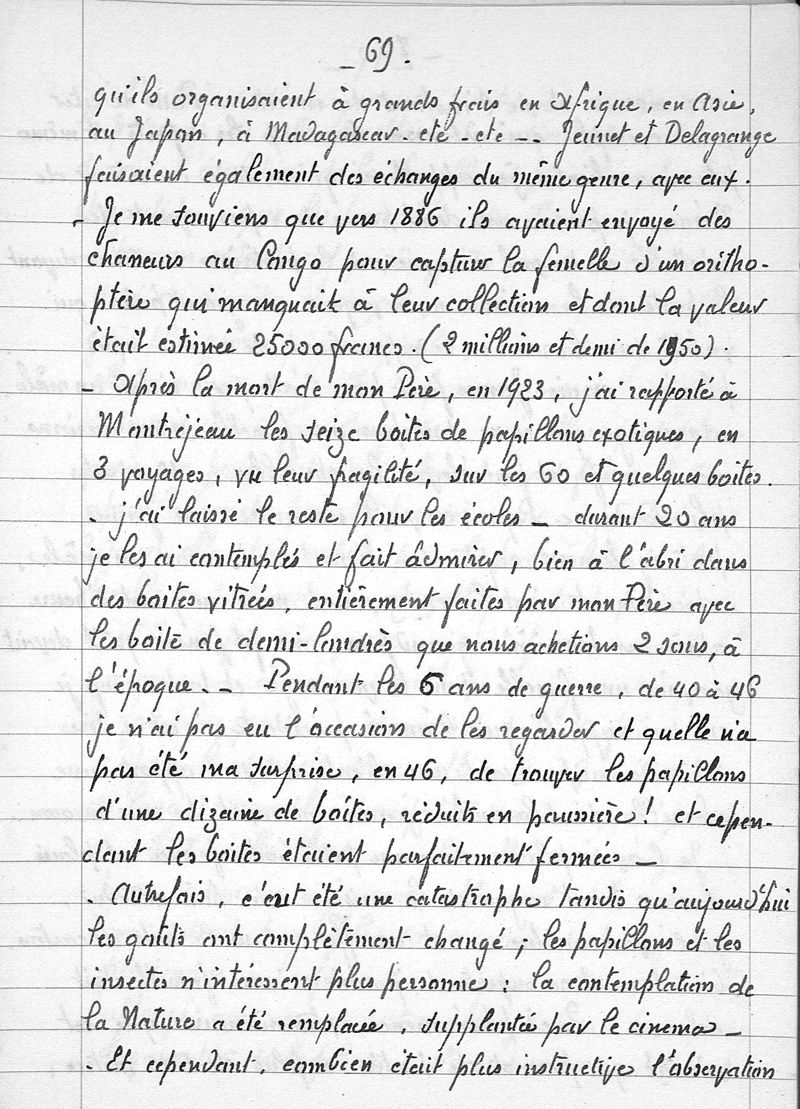 - 69.
qu'ils organisaient à grands frais en Afrique, en Asie,
au Japon, à Madagascar - etc - etc -- Jeunet et Delagrange
faisaient également des échanges du même genre, avec eux.
- Je me souviens que vers 1886 ils avaient envoyé des
chasseurs au Congo pour capturer la femelle d'un ortho-
ptère qui manquait à leur collection et dont la valeur
était estimée 25000 francs. (2 millions et demi de 1950).
- Après la mort de mon Père, en 1923, j'ai rapporté à
Montréjeau les seize boites de papillons exotiques, en
3 voyages, vu leur fragilité, sur les 60 et quelques boites.
. j'ai laissé le reste pour les écoles - durant 20 ans
je les ai contemplés et fait admirer, bien à l'abri dans
des boites vitrées, entièrement faites par mon Père avec
les boite de demi-londrès que nous achetions 2 sous, à
l'époque. - Pendant les 6 ans de guerre, de 40 à 46
je n'ai pas eu l'occasion de les regarder et quelle n'a
pas été ma surprise, en 46, de trouver les papillons
d'une dizaine de boîtes, réduits en poussière! et cepen-
dant les boites étaient parfaitement fermées -
. Autrefois, c'eut été une catastrophe tandis qu'aujourd'hui
les goûts ont complètement changé; les papillons et les
insectes n'intéressent plus personne: la contemplation de
la Nature a été remplacée, supplantée par le cinema -
. Et cependant, combien était plus instructive l'observation